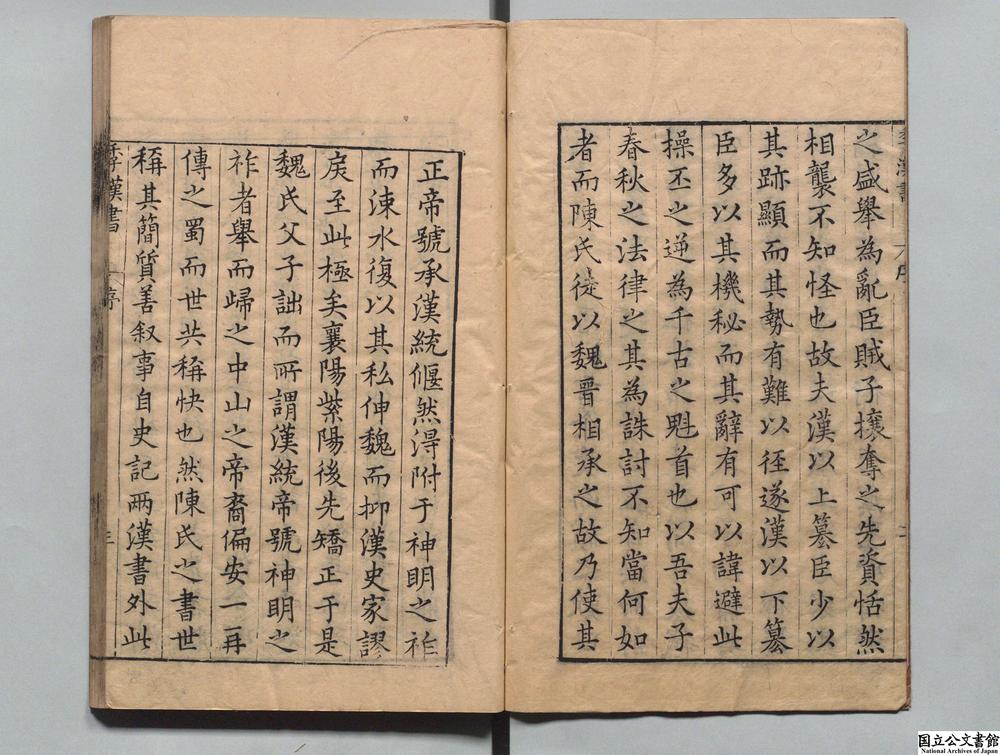 季漢書 序 二
之盛舉為亂臣賊子攘奪之先資恬然
相襲不知怪也故夫漢以上簒臣少以
其跡顯而其勢有難以徑遂漢以下簒
臣多以其機秘而其辭有可以諱避此
操丕之逆為千古之魁首也以吾夫子
春秋之法律之其為誅討不知當何如
者而陳氏徒以魏晋相承之故乃使其
正帝號承漢統偃然淂附于神明之祚
而涑水復以其私伸魏而抑漢史家謬
戾至此極矣襄陽紫陽後先矯正于是
魏氏父子詘而所謂漢統帝號神明之
祚者舉而歸之中山之帝裔偏安一再
傳之蜀而世共稱快也然陳氏之書世
稱其簡質善叙事自史記兩漢書外此
季漢書 序 三
国立公文書館
National Archives of Japan